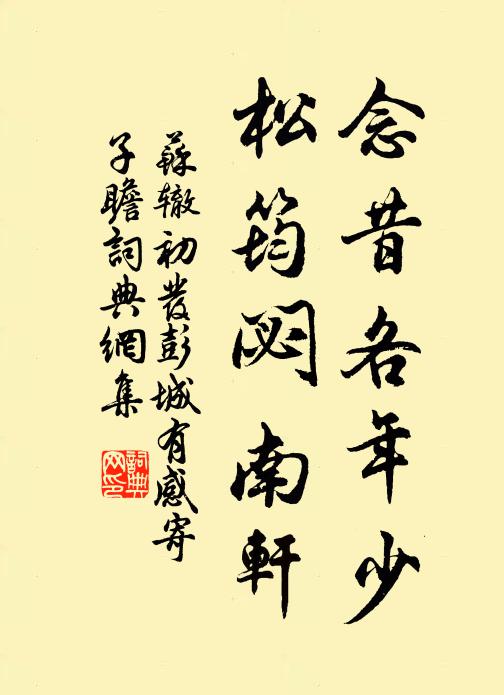 念昔各年少
松筠閟南軒
蘇辙初發彭城有感寄
子瞻詞典網集
詞典網印